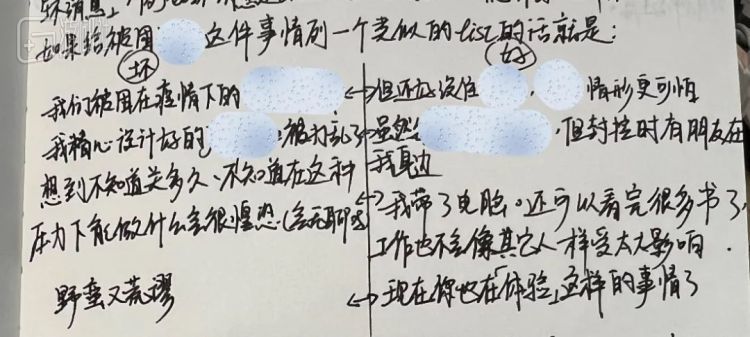 坏消息」
如果给被困 这件事情列一个类似的list的话就是:
坏
好
我们被困在疫情下的
我精心设计好的 被打乱了
想到不知道关多久、不知道在这种
压力下能做什么会很惶恐(会无聊
野蛮又荒谬
但还好没住 , 情形更可怕
虽然 ,但封控时有朋友在
我身边
我带了电脑。还可以看完很多书了,
工作也不会像其它人一样受太大影响.
现在你也在「体验」这样的事情了